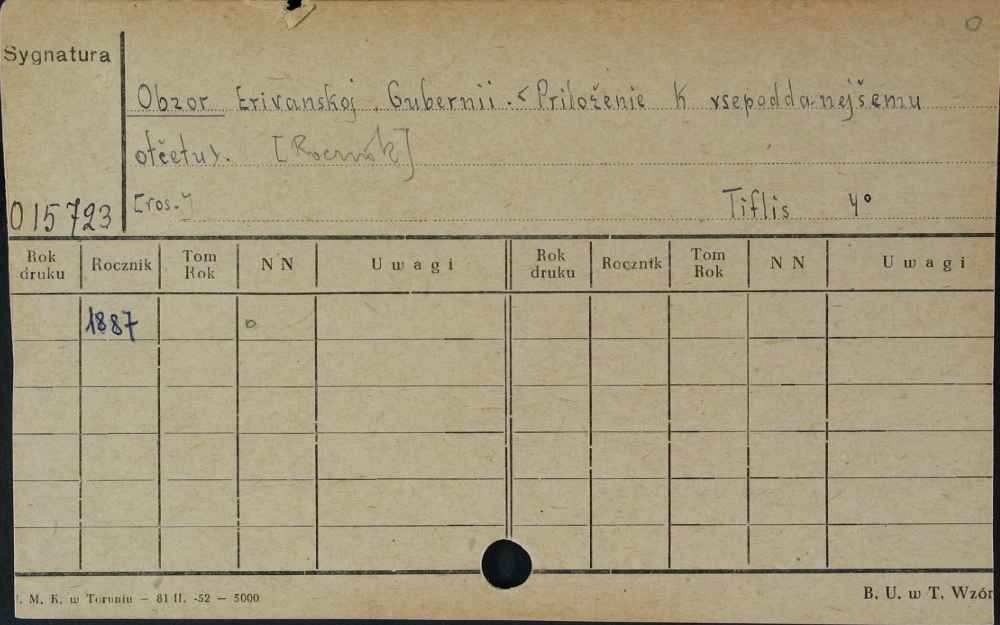 0
Sygnatura
Obzor Erivanskoj Gubernii. <Priloženie k vsepoddanejšemu
otčetu>. [Rocznik]
015723 [ros.] Tiflis 4°
Rok druku Rocznik Tom Rok N N Uwagi Rok druku Rocznik Tom Rok N N Uwagi
1887 0
. M. K. w Toruniu — 81 II. -52 — 5000 B. U. w T. Wzór